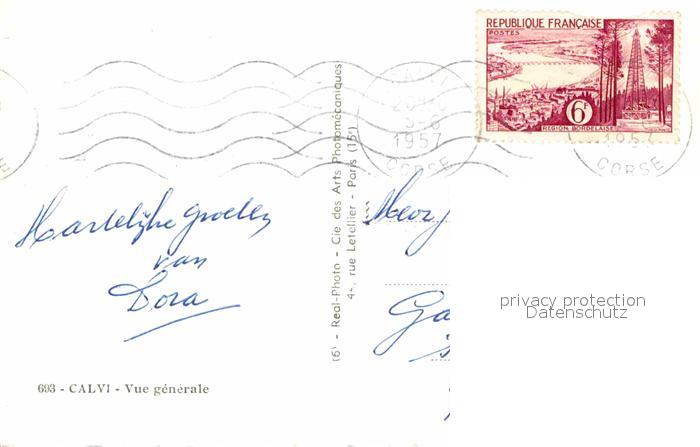 REPUBLIQUE FRANÇAISE
POSTES
6F
REGION BORDELAISE
CALVI
5-8
1957
CORSE
1957
CORSE
Hartelijke groeten
van
Dora
693 - CALVI - Vue générale
(6) - Real-Photo - Cie des Arts Photomécaniques
rue Letellier - Paris (15e)
Ga
privacy protection
Datenschutz